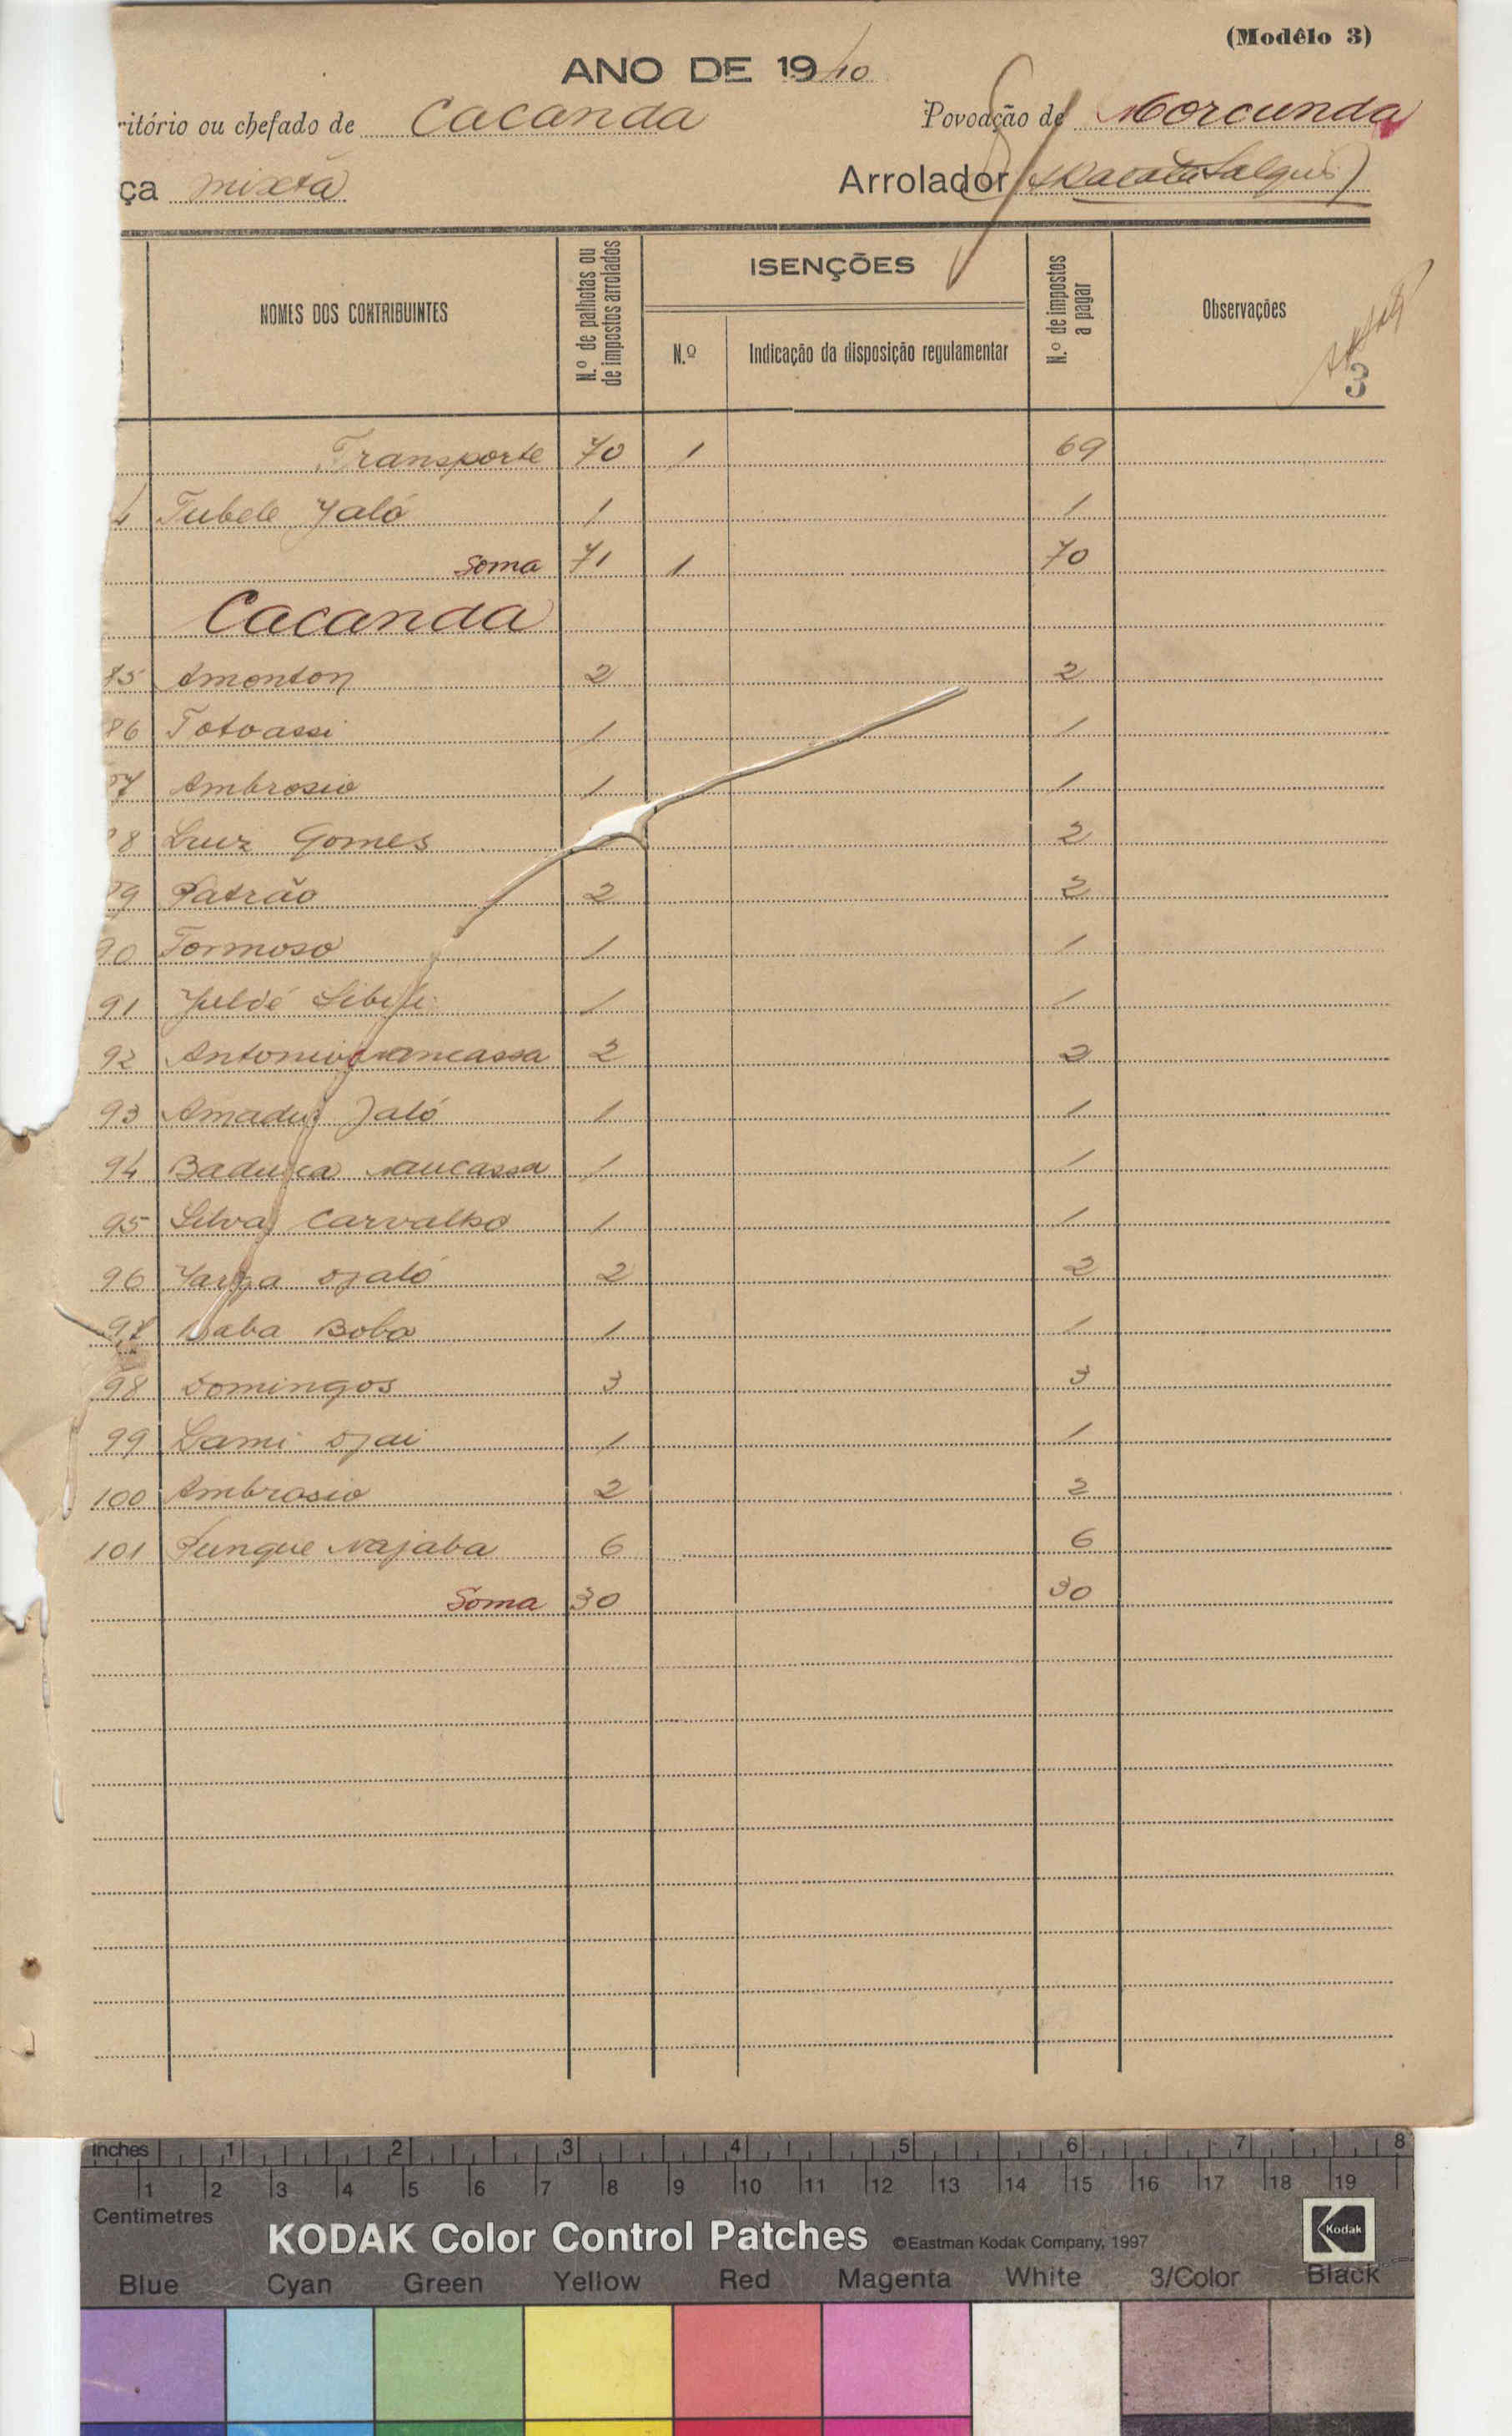 (Modêlo 3)
ANO DE 1940
ritório ou chefado de Cacanda Povoação de Morcunda
ça mixta Arrolador
NOMES DOS CONTRIBUINTES N.º de palhotas ou de impostos arrolados ISENÇÕES N.º Indicação da disposição regulamentar N.º de impostos a pagar Observações
3
Transporte 70 1 69
4 Tubele Jaló 1 1
Soma 71 1 70
Cacanda
85 Amonton 2 2
86 Totoassi 1 1
7 Ambrosio 1 1
8 Luiz Gomes 2
89 Patrão 2 2
90 Formoso 1 1
91 Juldé 1 1
92 Antonio 2 2
93 Amadu Jaló 1 1
94 Baduca Mancassa 1 1
95 Silva Carvalho 1 1
96 Djaló 2 2
97 Baba Bobo 1 1
98 Domingos 3 3
99 Lami Djai 1 1
100 Ambrosio 2 2
101 Pungue Najaba 6 6
Soma 30 30
Inches 1 2 3 4 5 6 7 8
1 2 3 4 5 6 7 8 9 10 11 12 13 14 15 16 17 18 19
Centimetres
KODAK Color Control Patches ©Eastman Kodak Company, 1997 Kodak
Blue Cyan Green Yellow Red Magenta White 3/Color Black